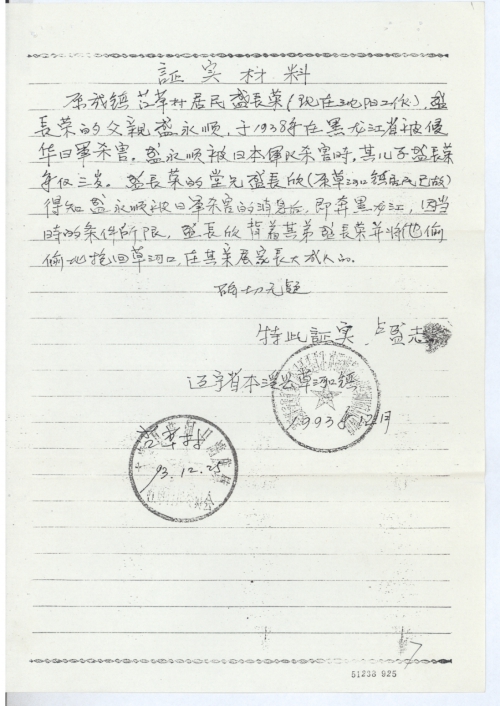 証实材料
系我鎮 草村居民盛長荣(現在沈阳工作),盛
長荣的父親盛永顺,于1938年在黑龙江省被侵
华日軍杀害。盛永顺被日本軍队杀害時,其儿子盛長荣
年仅三岁。盛長荣的堂兄盛長欣(系草河口鎮居民已故)
得知盛永顺被日軍杀害的消息后,即奔黑龙江,因当
時的条件所限,盛長欣背着其弟盛長荣并将他偷
偷地抱回草河口,在其亲居家長大成人的。
确切无疑
特此証实
辽宁省本溪 草河口鎮
1993 12月
93.12.25
51238 925